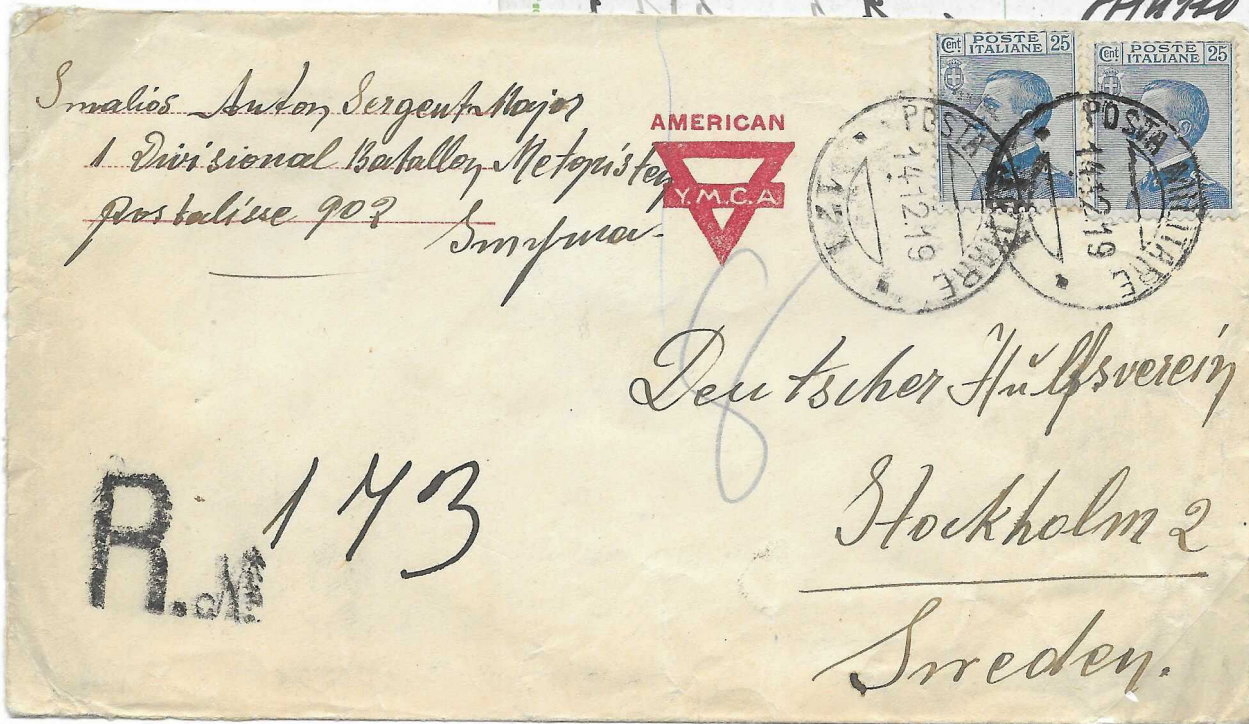 Smaliós Anton, Sergent-Major
1 Divisional Batallon Metopisten
Postalisse 902
Smyrna-
AMERICAN
Y.M.C.A
Cent POSTE ITALIANE 25
Cent POSTE ITALIANE 25
POSTA MILITARE
14.12.19
POSTA MILITARE
14.12.19
8
Deutscher Hŭlfsverein
Stockholm 2
Sweden.
R.№ 173